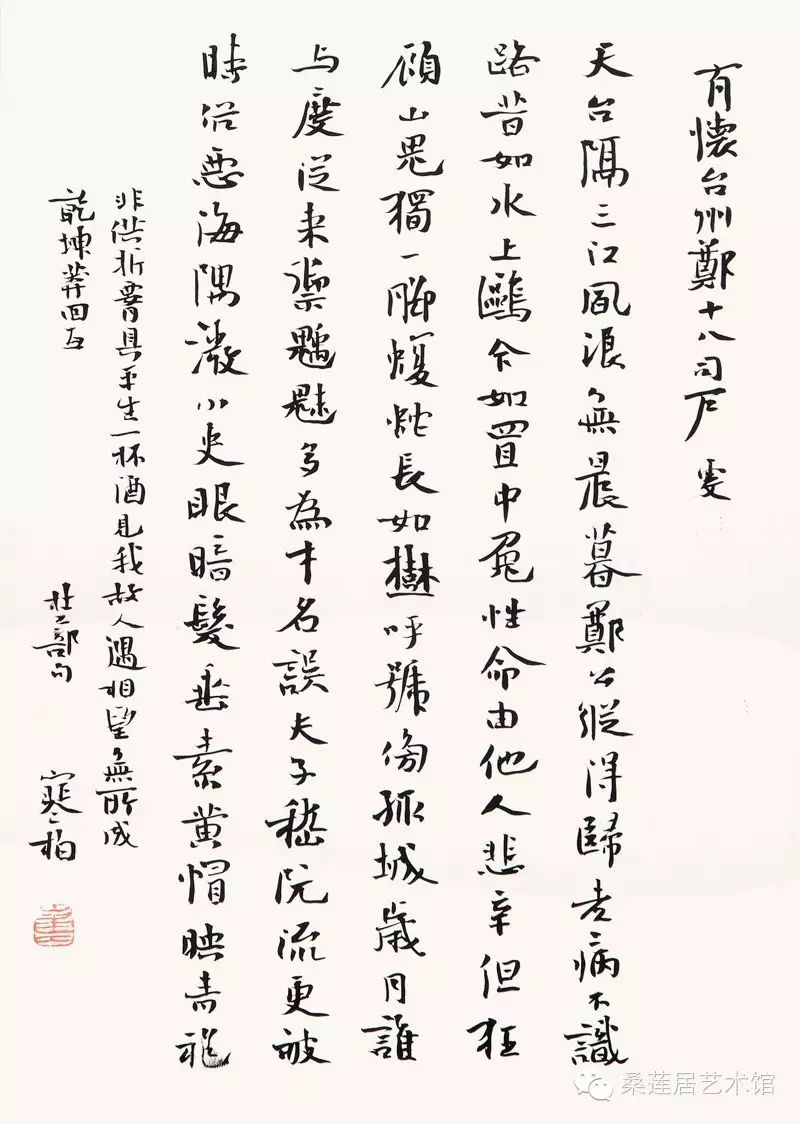 有懷台州鄭十八司戶 虔
天台隔三江風浪無晨暮鄭公縱得歸老病不識
路昔如水上鷗今如罝中兔性命由他人悲辛但狂
顧山鬼獨一腳蝮蛇長如樹呼號傍孤城歲月誰
与度從来禦魑魅多為才名誤夫子嵇阮流更被
時俗惡海隅微小吏眼暗髮垂素黃帽映青袍
非供折腰具平生一杯酒見我故人遇相望無所成
乾坤莽回互
杜工部句
寒柏
桑莲居艺术馆